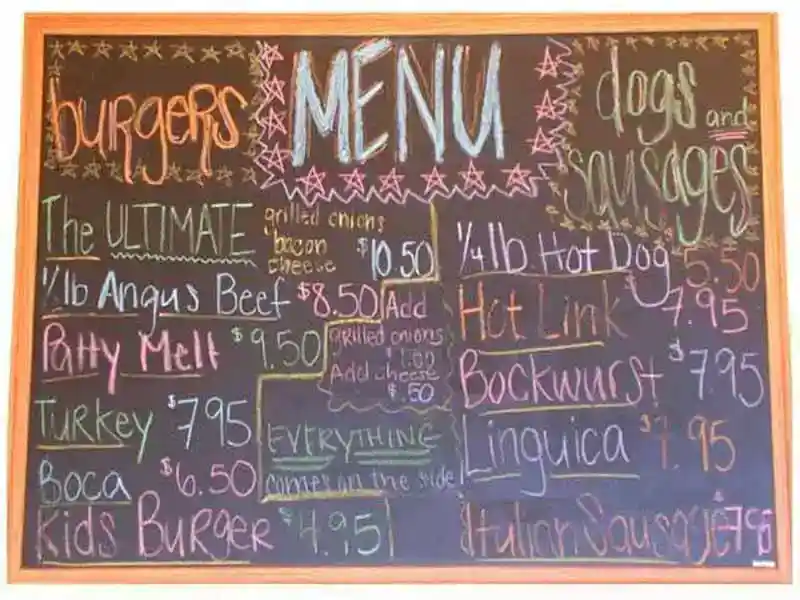 MENU
burgers
The ULTIMATE grilled onions bacon cheese $10.50
½lb Angus Beef $8.50
Add grilled onions $1.00
Add cheese $.50
Patty Melt $9.50
Turkey $795
Boca $6.50
Kids Burger $4.95
EVERYTHING
comes on the side
dogs and
sausages
¼lb Hot Dog $5.50
Hot Link 7.95
Bockwurst $7.95
Linguica $7.95
Italian Sausage $795